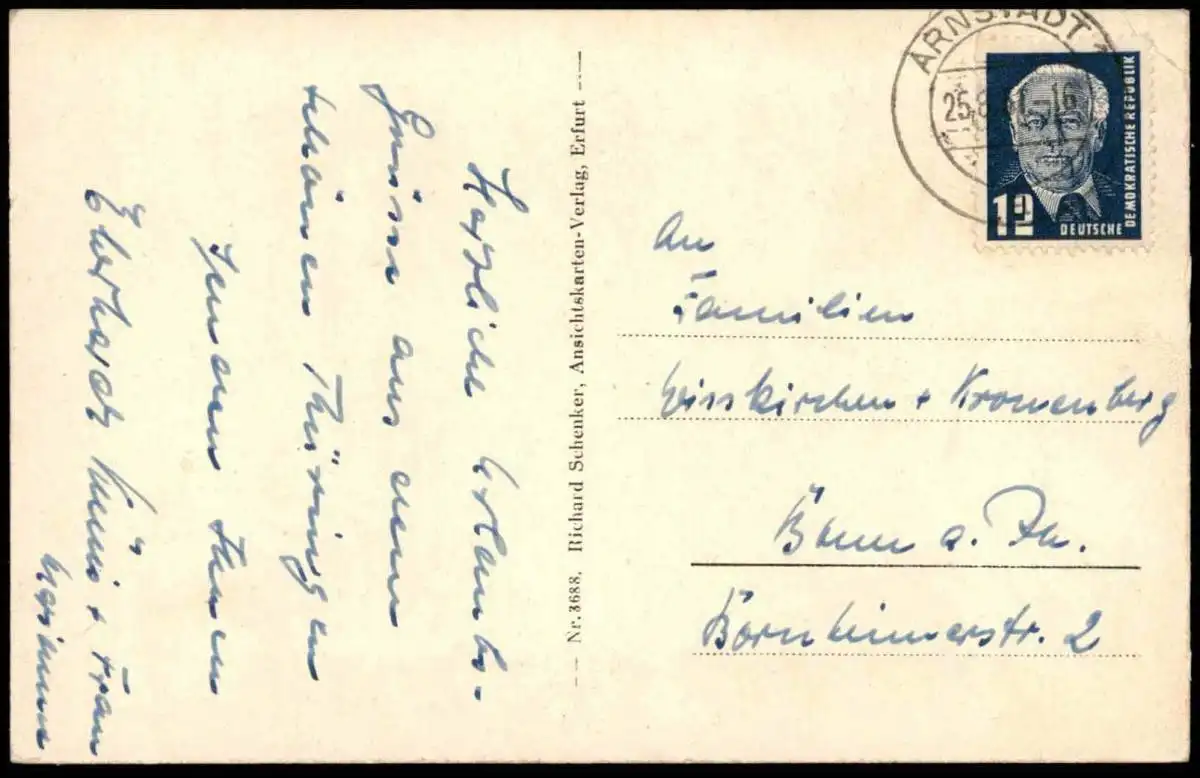 Herzliche Urlaubs-
Grüsse aus dem
schönen Thüringen
senden Ihnen
Eberhard + Frau
Nr. 3688. Richard Schenker, Ansichtskarten-Verlag, Erfurt
ARNSTADT 1
25.8. -16
12
DEUTSCHE
DEMOKRATISCHE REPUBLIK
An
Familien
Wisskirchen + Kronenberg
Bonn a. Rh.
Bornheimerstr. 2